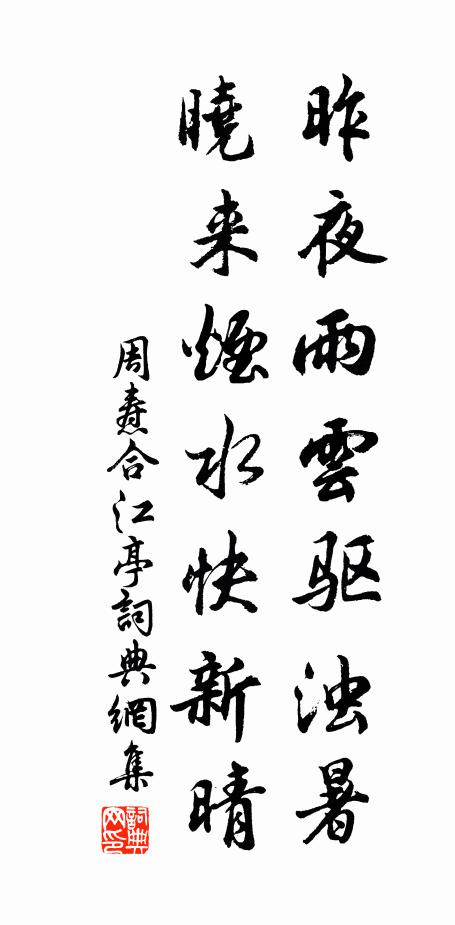 昨夜雨雲驱浊暑
曉来煙水快新晴
周焘合江亭詞典網集
詞典网印